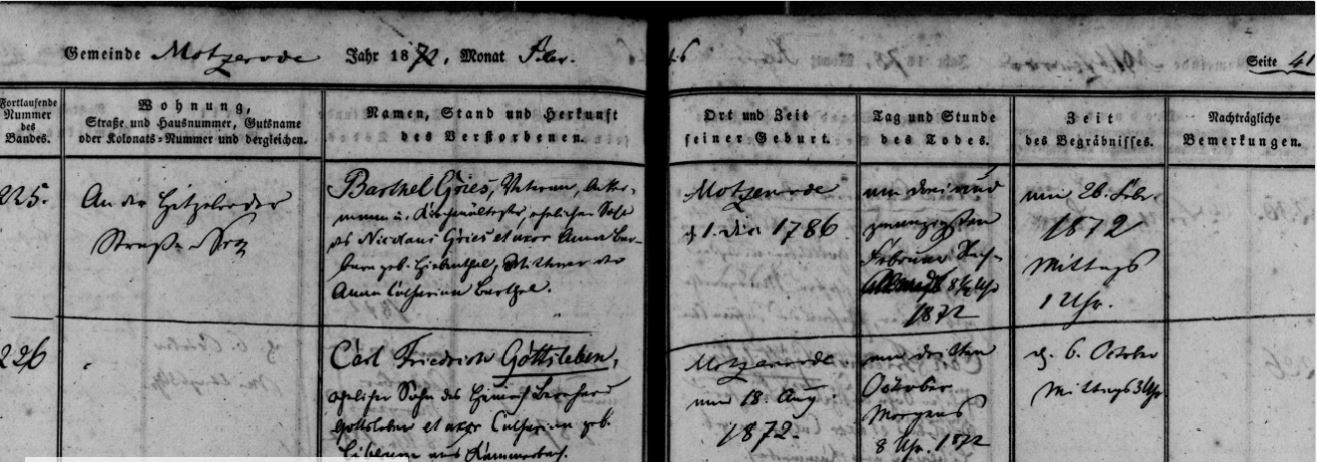 Gemeinde Motzerode Jahr 1872, Monat Febr.
Seite 41
Fortlaufende Nummer des Bandes.
Wohnung,
Straße und Hausnummer, Gutsname
oder Kolonats-Nummer und dergleichen.
Namen, Stand und Herkunft
des Verstorbenen.
Ort und Zeit
seiner Geburt.
Tag und Stunde
des Todes.
Zeit
des Begräbnisses.
Nachträgliche
Bemerkungen.
225.
An der Hitzeroder
Straße
Barthel Gries, Veteran, Acker-
mann u. Kirchenältester, ehelicher Sohn
des Nicolaus Gries et uxor Anna Bar-
bara geb. Wittwer der
Anna Catharina Barthel.
Motzerode
1786
am drei und
zwanzigsten
Februar Nach-
8½ Uhr
1872
am 26. Febr.
1872
Mittags
1 Uhr.
226
Carl Friedrich Gottsleben,
ehelicher Sohn des Heinrich Bernhard
Gottsleben et uxor Catharina geb.
aus Kammerbach.
Motzerode
am 18. Aug.
1872.
am dritten
October
Morgens
8 Uhr. 1872
d. 6. October
Mittags 3 Uhr